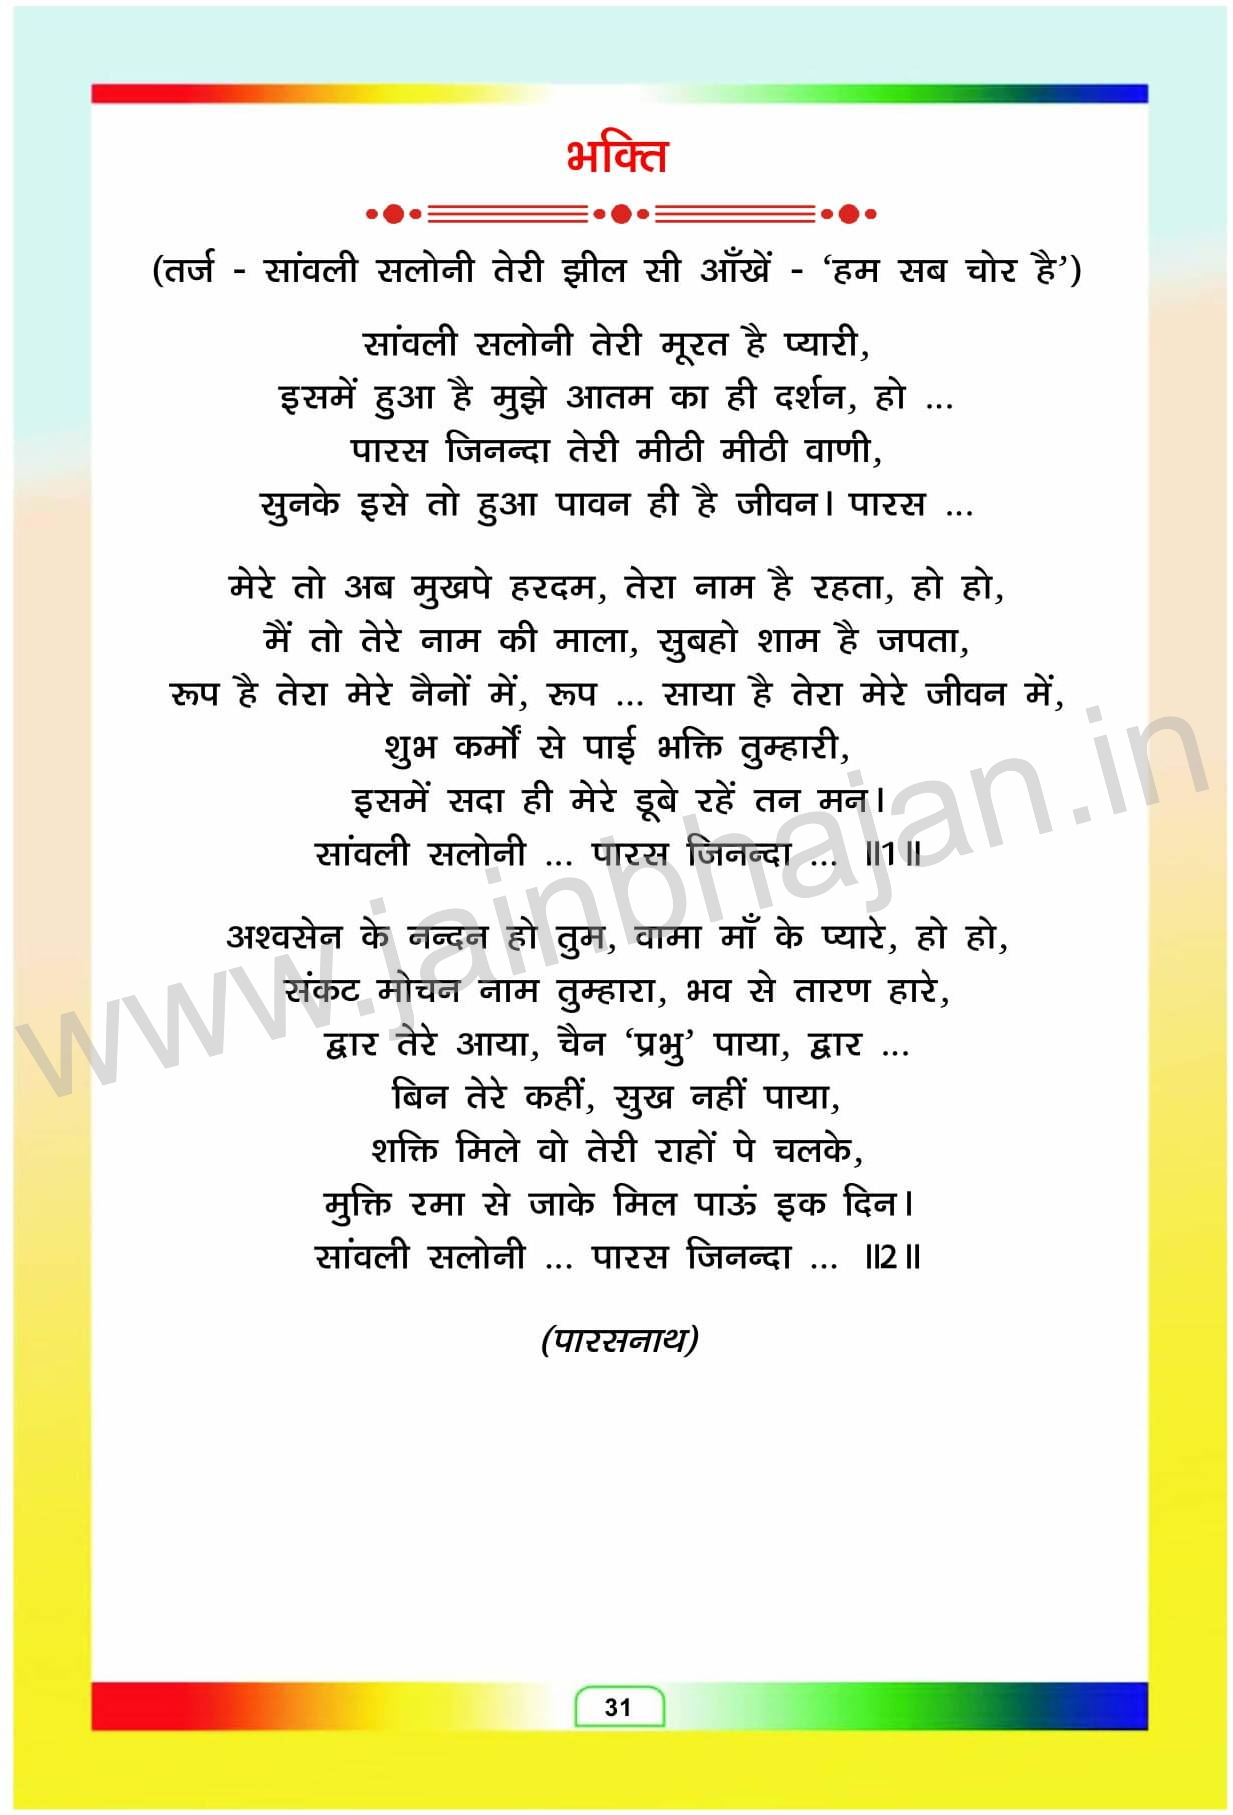 भक्ति
(तर्ज - सांवली सलोनी तेरी झील सी आँखें - ‘हम सब चोर है’)
सांवली सलोनी तेरी मूरत है प्यारी,
इसमें हुआ है मुझे आतम का ही दर्शन, हो ...
पारस जिनन्दा तेरी मीठी मीठी वाणी,
सुनके इसे तो हुआ पावन ही है जीवन। पारस ...
मेरे तो अब मुखपे हरदम, तेरा नाम है रहता, हो हो,
मैं तो तेरे नाम की माला, सुबहो शाम है जपता,
रूप है तेरा मेरे नैनों में, रूप ... साया है तेरा मेरे जीवन में,
शुभ कर्मों से पाई भक्ति तुम्हारी,
इसमें सदा ही मेरे डूबे रहें तन मन।
सांवली सलोनी ... पारस जिनन्दा ... ॥1॥
अश्वसेन के नन्दन हो तुम, वामा माँ के प्यारे, हो हो,
संकट मोचन नाम तुम्हारा, भव से तारण हारे,
द्वार तेरे आया, चैन ‘प्रभु’ पाया, द्वार ...
बिन तेरे कहीं, सुख नहीं पाया,
शक्ति मिले वो तेरी राहों पे चलके,
मुक्ति रमा से जाके मिल पाऊं इक दिन।
सांवली सलोनी ... पारस जिनन्दा ... ॥2॥
(पारसनाथ)
www.jainbhajan.in
31